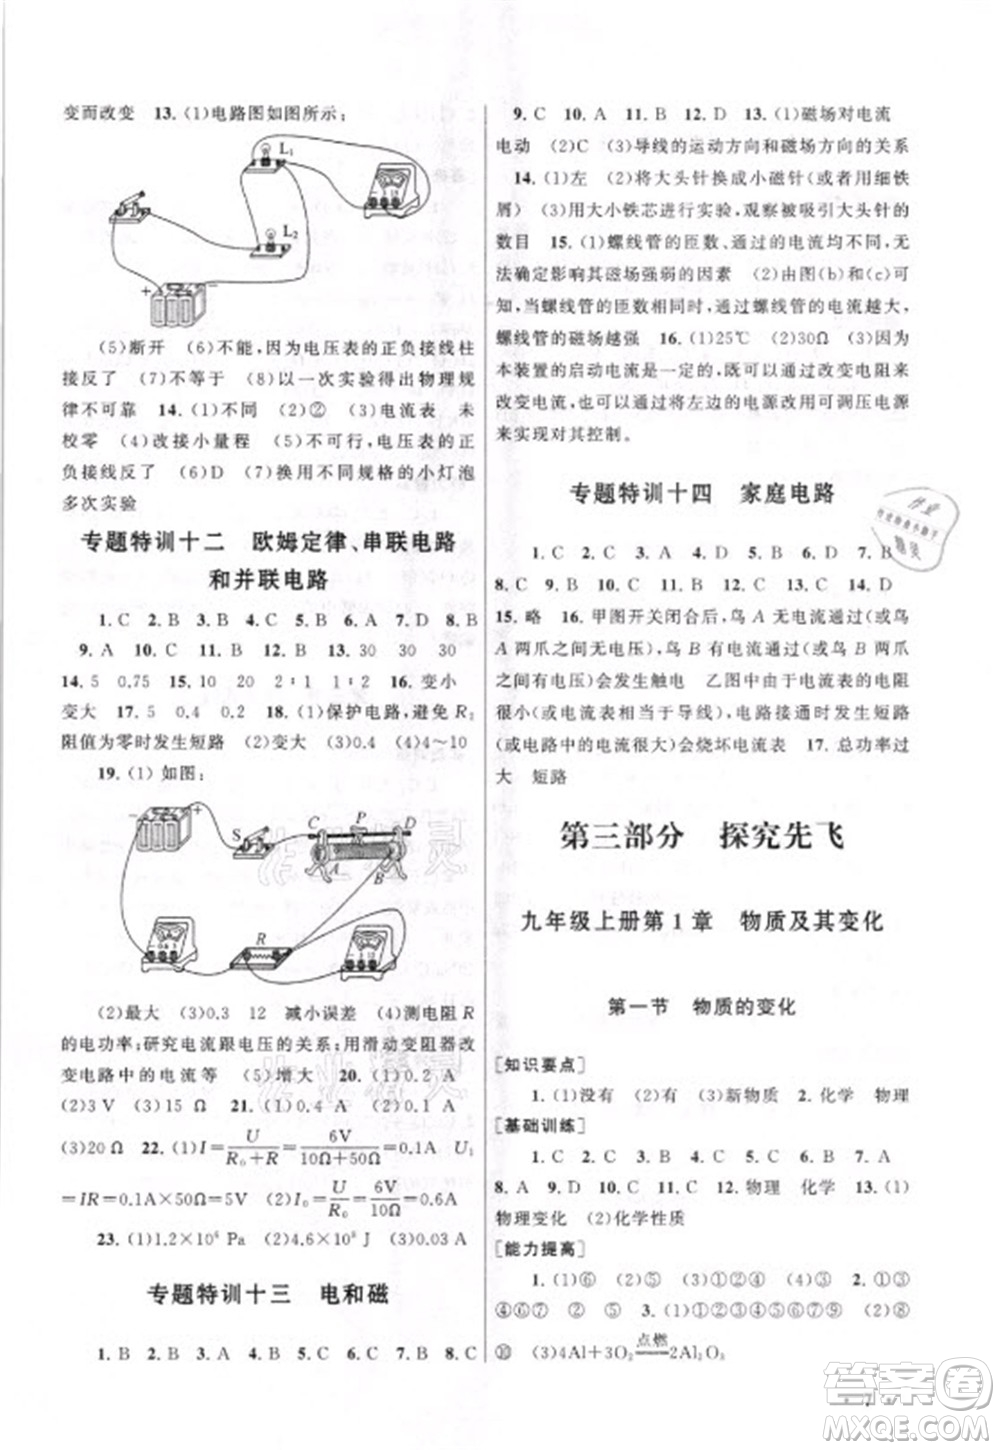 变而改变　13. (1)电路图如图所示:
L₁
L₂
+
−
(5)断开　(6)不能,因为电压表的正负接线柱
接反了　(7)不等于　(8)以一次实验得出物理规
律不可靠　14. (1)不同　(2)②　(3)电流表　未
校零　(4)改接小量程　(5)不可行,电压表的正
负接线反了　(6)D　(7)换用不同规格的小灯泡
多次实验
专题特训十二　欧姆定律、串联电路
和并联电路
1. C　2. B　3. B　4. C　5. C　6. A　7. D　8. B
9. A　10. C　11. C　12. B　13. 30　30　30
14. 5　0.75　15. 10　20　2∶1　1∶2　16. 变小
变大　17. 5　0.4　0.2　18. (1)保护电路,避免 R₂
阻值为零时发生短路　(2)变大　(3)0.4　(4)4～10
19. (1) 如图:
−
+
S
C
P
D
A
B
R
(2)最大　(3)0.3　12　减小误差　(4)测电阻 R
的电功率;研究电流跟电压的关系;用滑动变阻器改
变电路中的电流等　(5)增大　20. (1)0.2 A
(2)3 V　(3)2 W　21. (1)0.4 A　(2)0.1 A
(3)20 Ω　22. (1)I=U/(R₀+R)=6V/(10Ω+50Ω)=0.1A　U₁
=IR=0.1A×50Ω=5V　(2)I=U/R₀=6V/10Ω=0.6A
23. (1)1.2×10⁶ Pa　(2)4.6×10⁸ J　(3)0.03 A
专题特训十三　电和磁
1. B　2. B　3. A　4. B　5. C　6. A　7. B　8. C
9. C　10. A　11. B　12. D　13. (1)磁场对电流
电动　(2)C　(3)导线的运动方向和磁场方向的关系
14. (1)左　(2)将大头针换成小磁针(或者用细铁
屑)　(3)用大小铁芯进行实验,观察被吸引大头针的
数目　15. (1)螺线管的匝数、通过的电流均不同,无
法确定影响其磁场强弱的因素　(2)由图(b)和(c)可
知,当螺线管的匝数相同时,通过螺线管的电流越大,
螺线管的磁场越强　16. (1)25℃　(2)30Ω　(3)因为
本装置的启动电流是一定的,可以通过改变电阻来
改变电流,也可以通过将左边的电源改用可调压电源
来实现对其控制。
专题特训十四　家庭电路
1. D　2. C　3. A　4. B　5. D　6. B　7. B
8. C　9. D　10. A　11. B　12. C　13. C　14. D
15. 略　16. 甲图开关闭合后,鸟 A 无电流流过(或鸟
A 两爪之间无电压),鸟 B 有电流流过(或鸟 B 两爪
之间有电压),鸟 B 会发生触电　乙图中电流表的电阻
很小(或电流表相当于导线),电路接通时发生短路
(或电路中的电流很大)会烧坏电流表　17. 总功率过
大　短路
第三部分　探究先飞
九年级上册第 1 章　物质及其变化
第一节　物质的变化
[知识要点]
1. (1)没有　(2)有　(3)新物质　2. 化学　物理
[基础训练]
1. C　2. C　3. B　4. C　5. D　6. B　7. A
8. A　9. D　10. D　11. A　12. 物理　化学　13. (1)
物理变化　(2)化学性质
[能力提高]
1. (1)⑥　(2)⑤　2. (1)①②④⑧　(2)①③
④⑥⑦　②⑤　3. (1)①②③⑤⑦⑨　(2)④⑥⑧
⑩　(3)4Al+3O₂ 点燃 2Al₂O₃
作业
精灵
答案圈